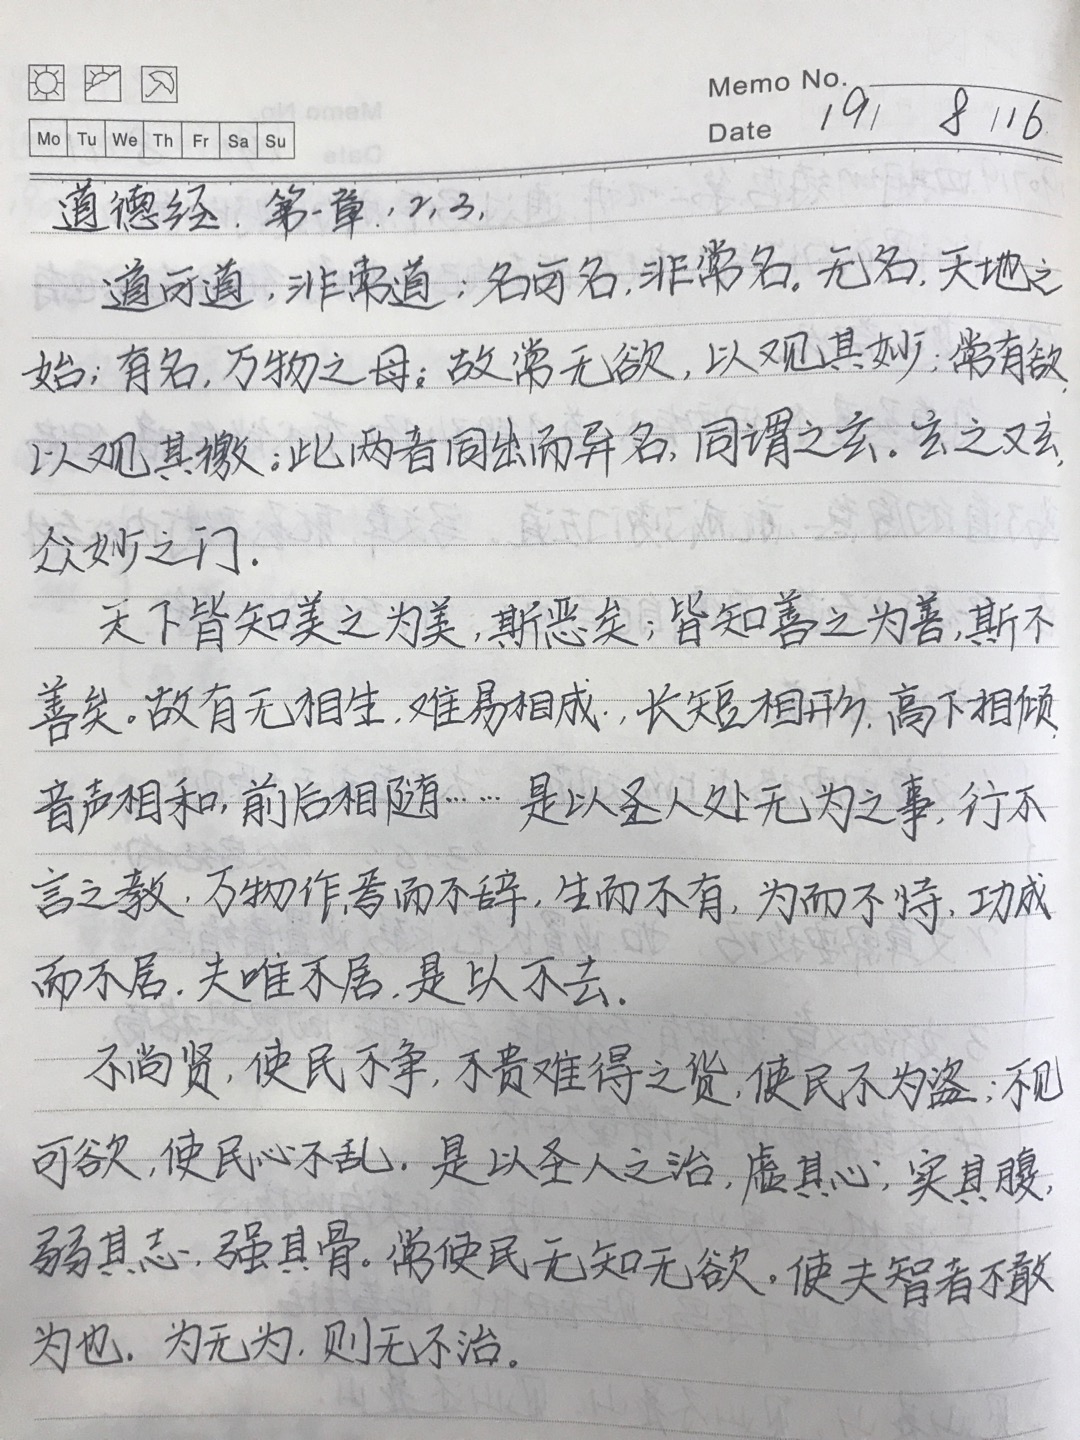 Memo No.
Mo Tu We Th Fr Sa Su
Date 19/ 8/16
道德经.第一章.2,3,
道可道,非常道;名可名,非常名。无名,天地之
始;有名,万物之母;故常无欲,以观其妙;常有欲,
以观其徼。此两者同出而异名,同谓之玄。玄之又玄,
众妙之门.
天下皆知美之为美,斯恶矣;皆知善之为善,斯不
善矣。故有无相生,难易相成,长短相形,高下相倾,
音声相和,前后相随……是以圣人处无为之事,行不
言之教,万物作焉而不辞,生而不有,为而不恃,功成
而不居.夫唯不居,是以不去.
不尚贤,使民不争,不贵难得之货,使民不为盗;不见
可欲,使民心不乱.是以圣人之治,虚其心;实其腹,
弱其志,强其骨。常使民无知无欲。使夫智者不敢
为也.为无为,则无不治。